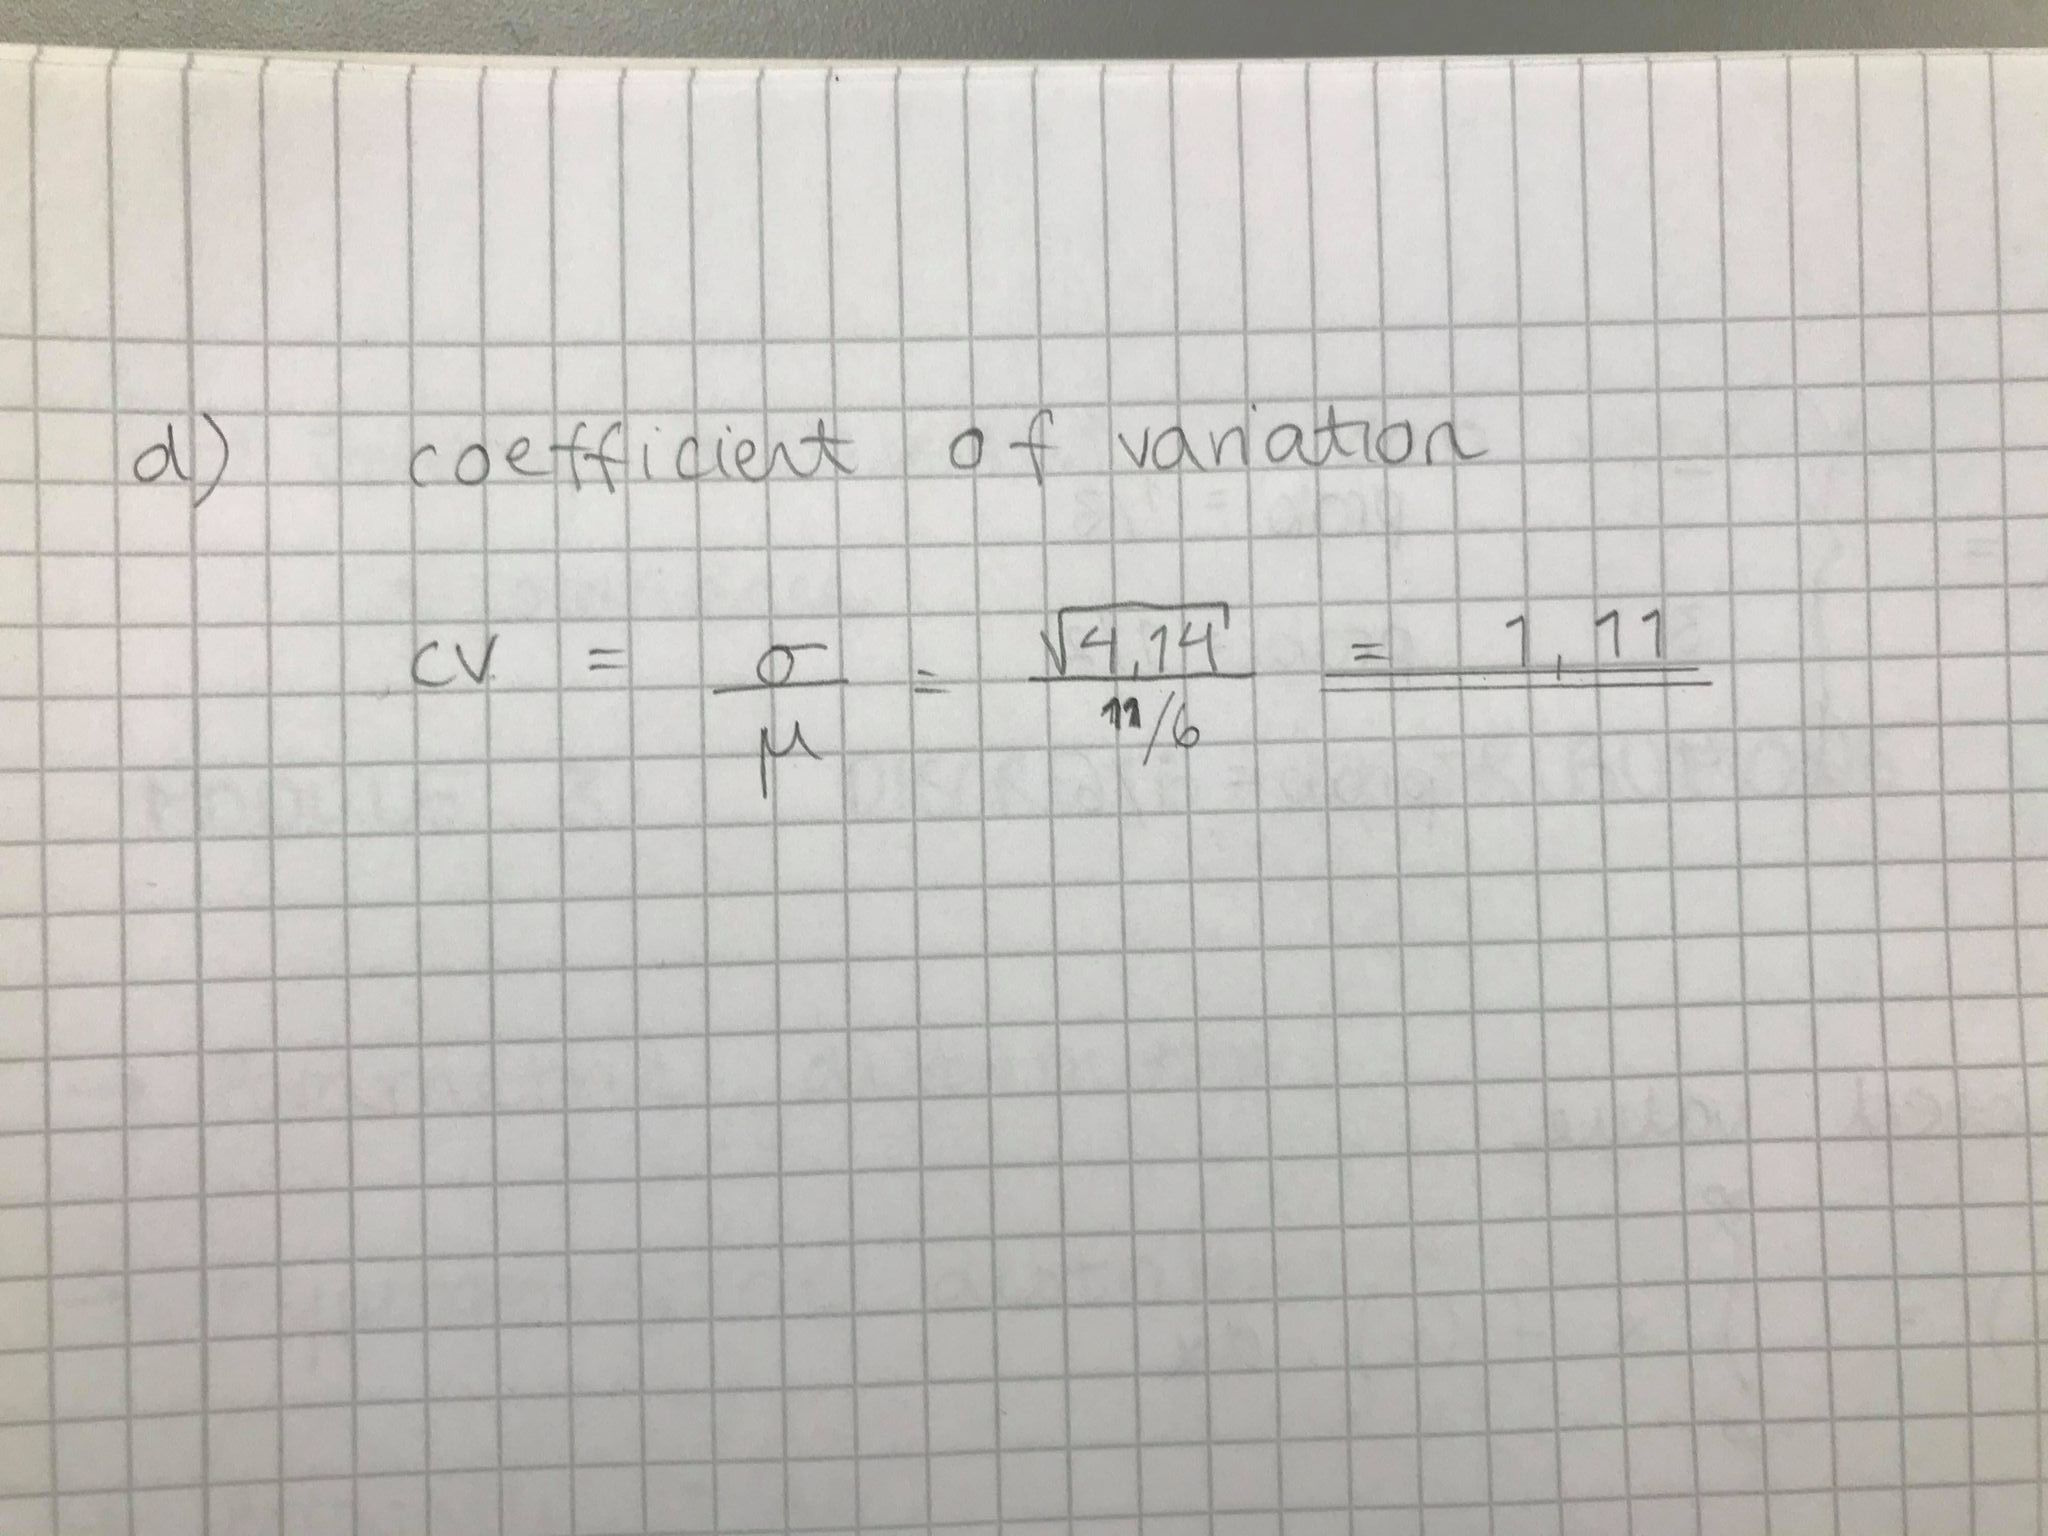 d) coefficient of variation
CV = σ/μ = √4,14 / 11/6 = 1,11